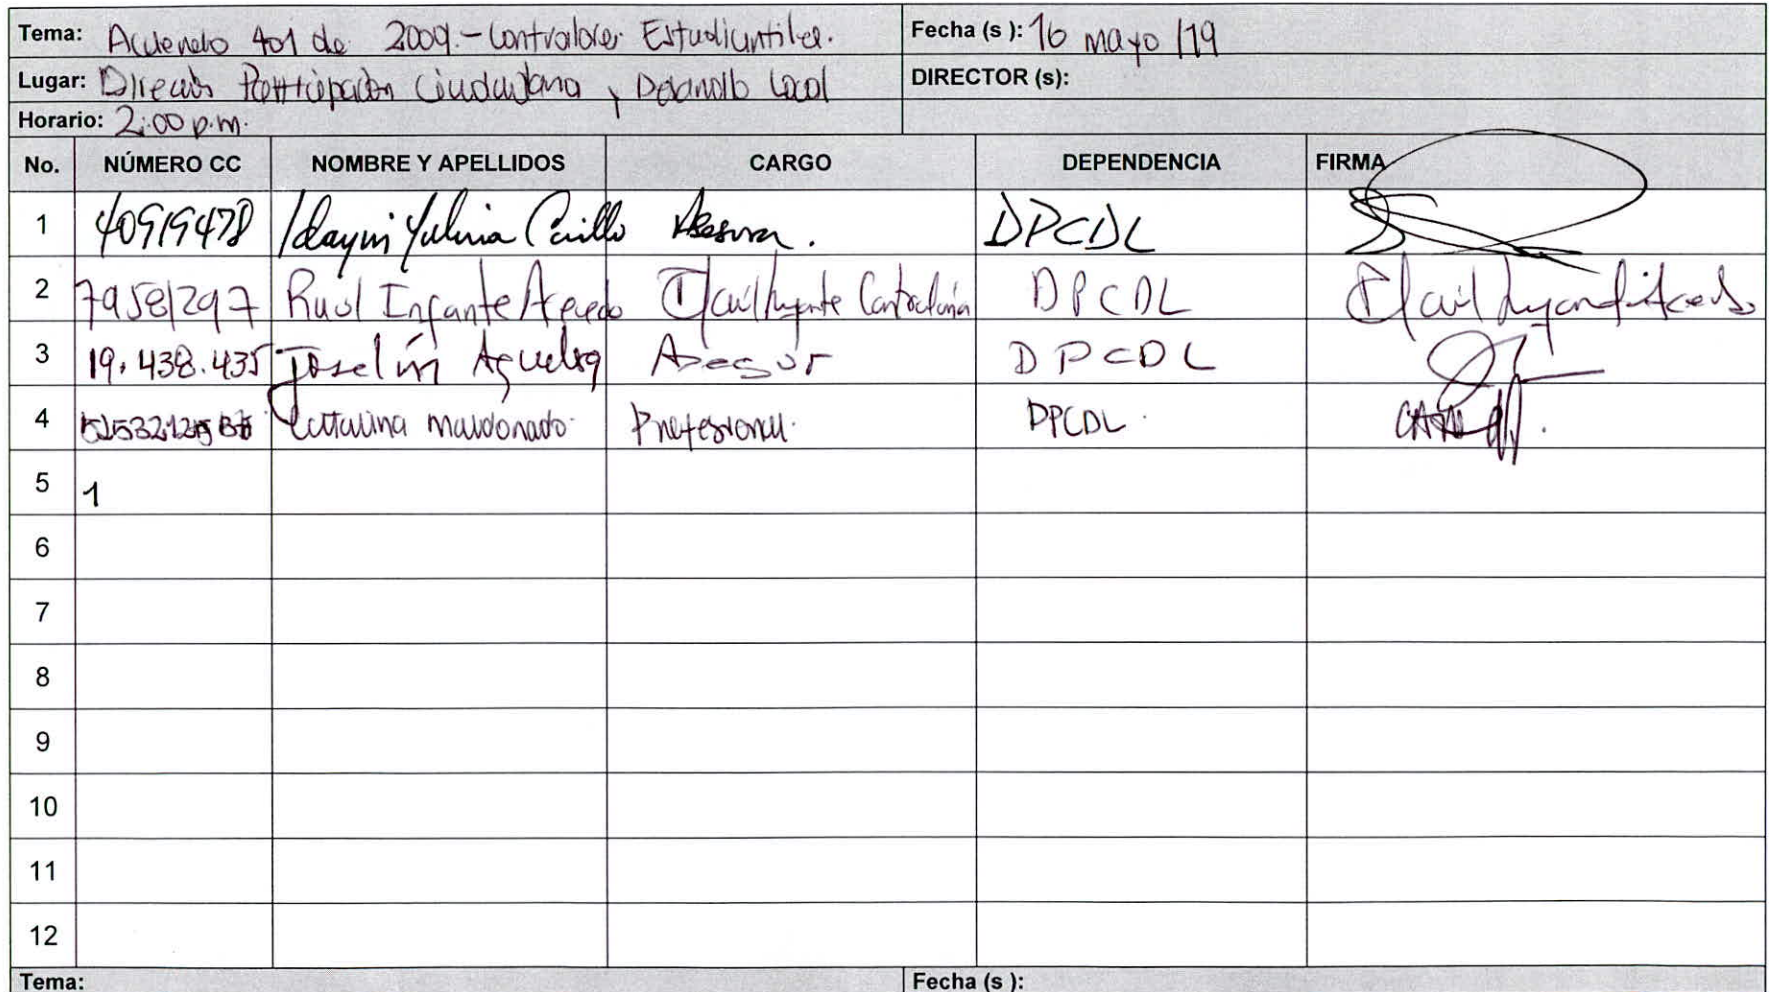 Tema: Acuerdo 401 de 2009.- Contralores Estudiantiles. Fecha (s ): 16 mayo /19
Lugar: Direción Participación Ciudadana y Desarrollo Local DIRECTOR (s):
Horario: 2:00 p.m.
No. NÚMERO CC NOMBRE Y APELLIDOS CARGO DEPENDENCIA FIRMA
1 40919478 Yulima Asesora. DPCDL
2 79581297 Raul Infante Acevedo Contraloria DPCDL
3 19.438.435 Joselín Aguelea Asesor DPCDL
4 Catalina maldonado. Profesional. DPCDL.
5 1
6
7
8
9
10
11
12
Tema: Fecha (s ):